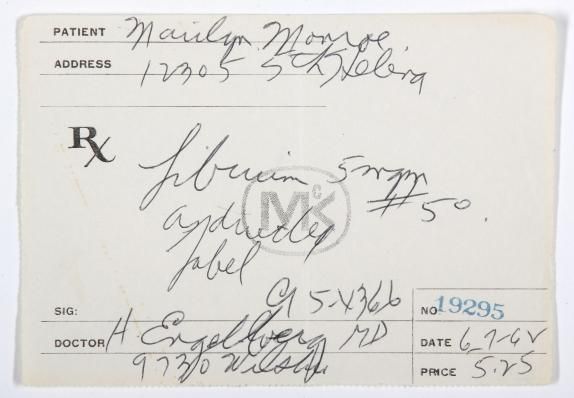 PATIENT Marilyn Monroe
ADDRESS 12305 5th Helena
Rx
Librium 5 mgm
#50.
as directed
label
McK
CR 5-4366
SIG: NO 19295
DOCTOR H Engelberg MD DATE 6-7-62
9730 Wilshi PRICE 5.25